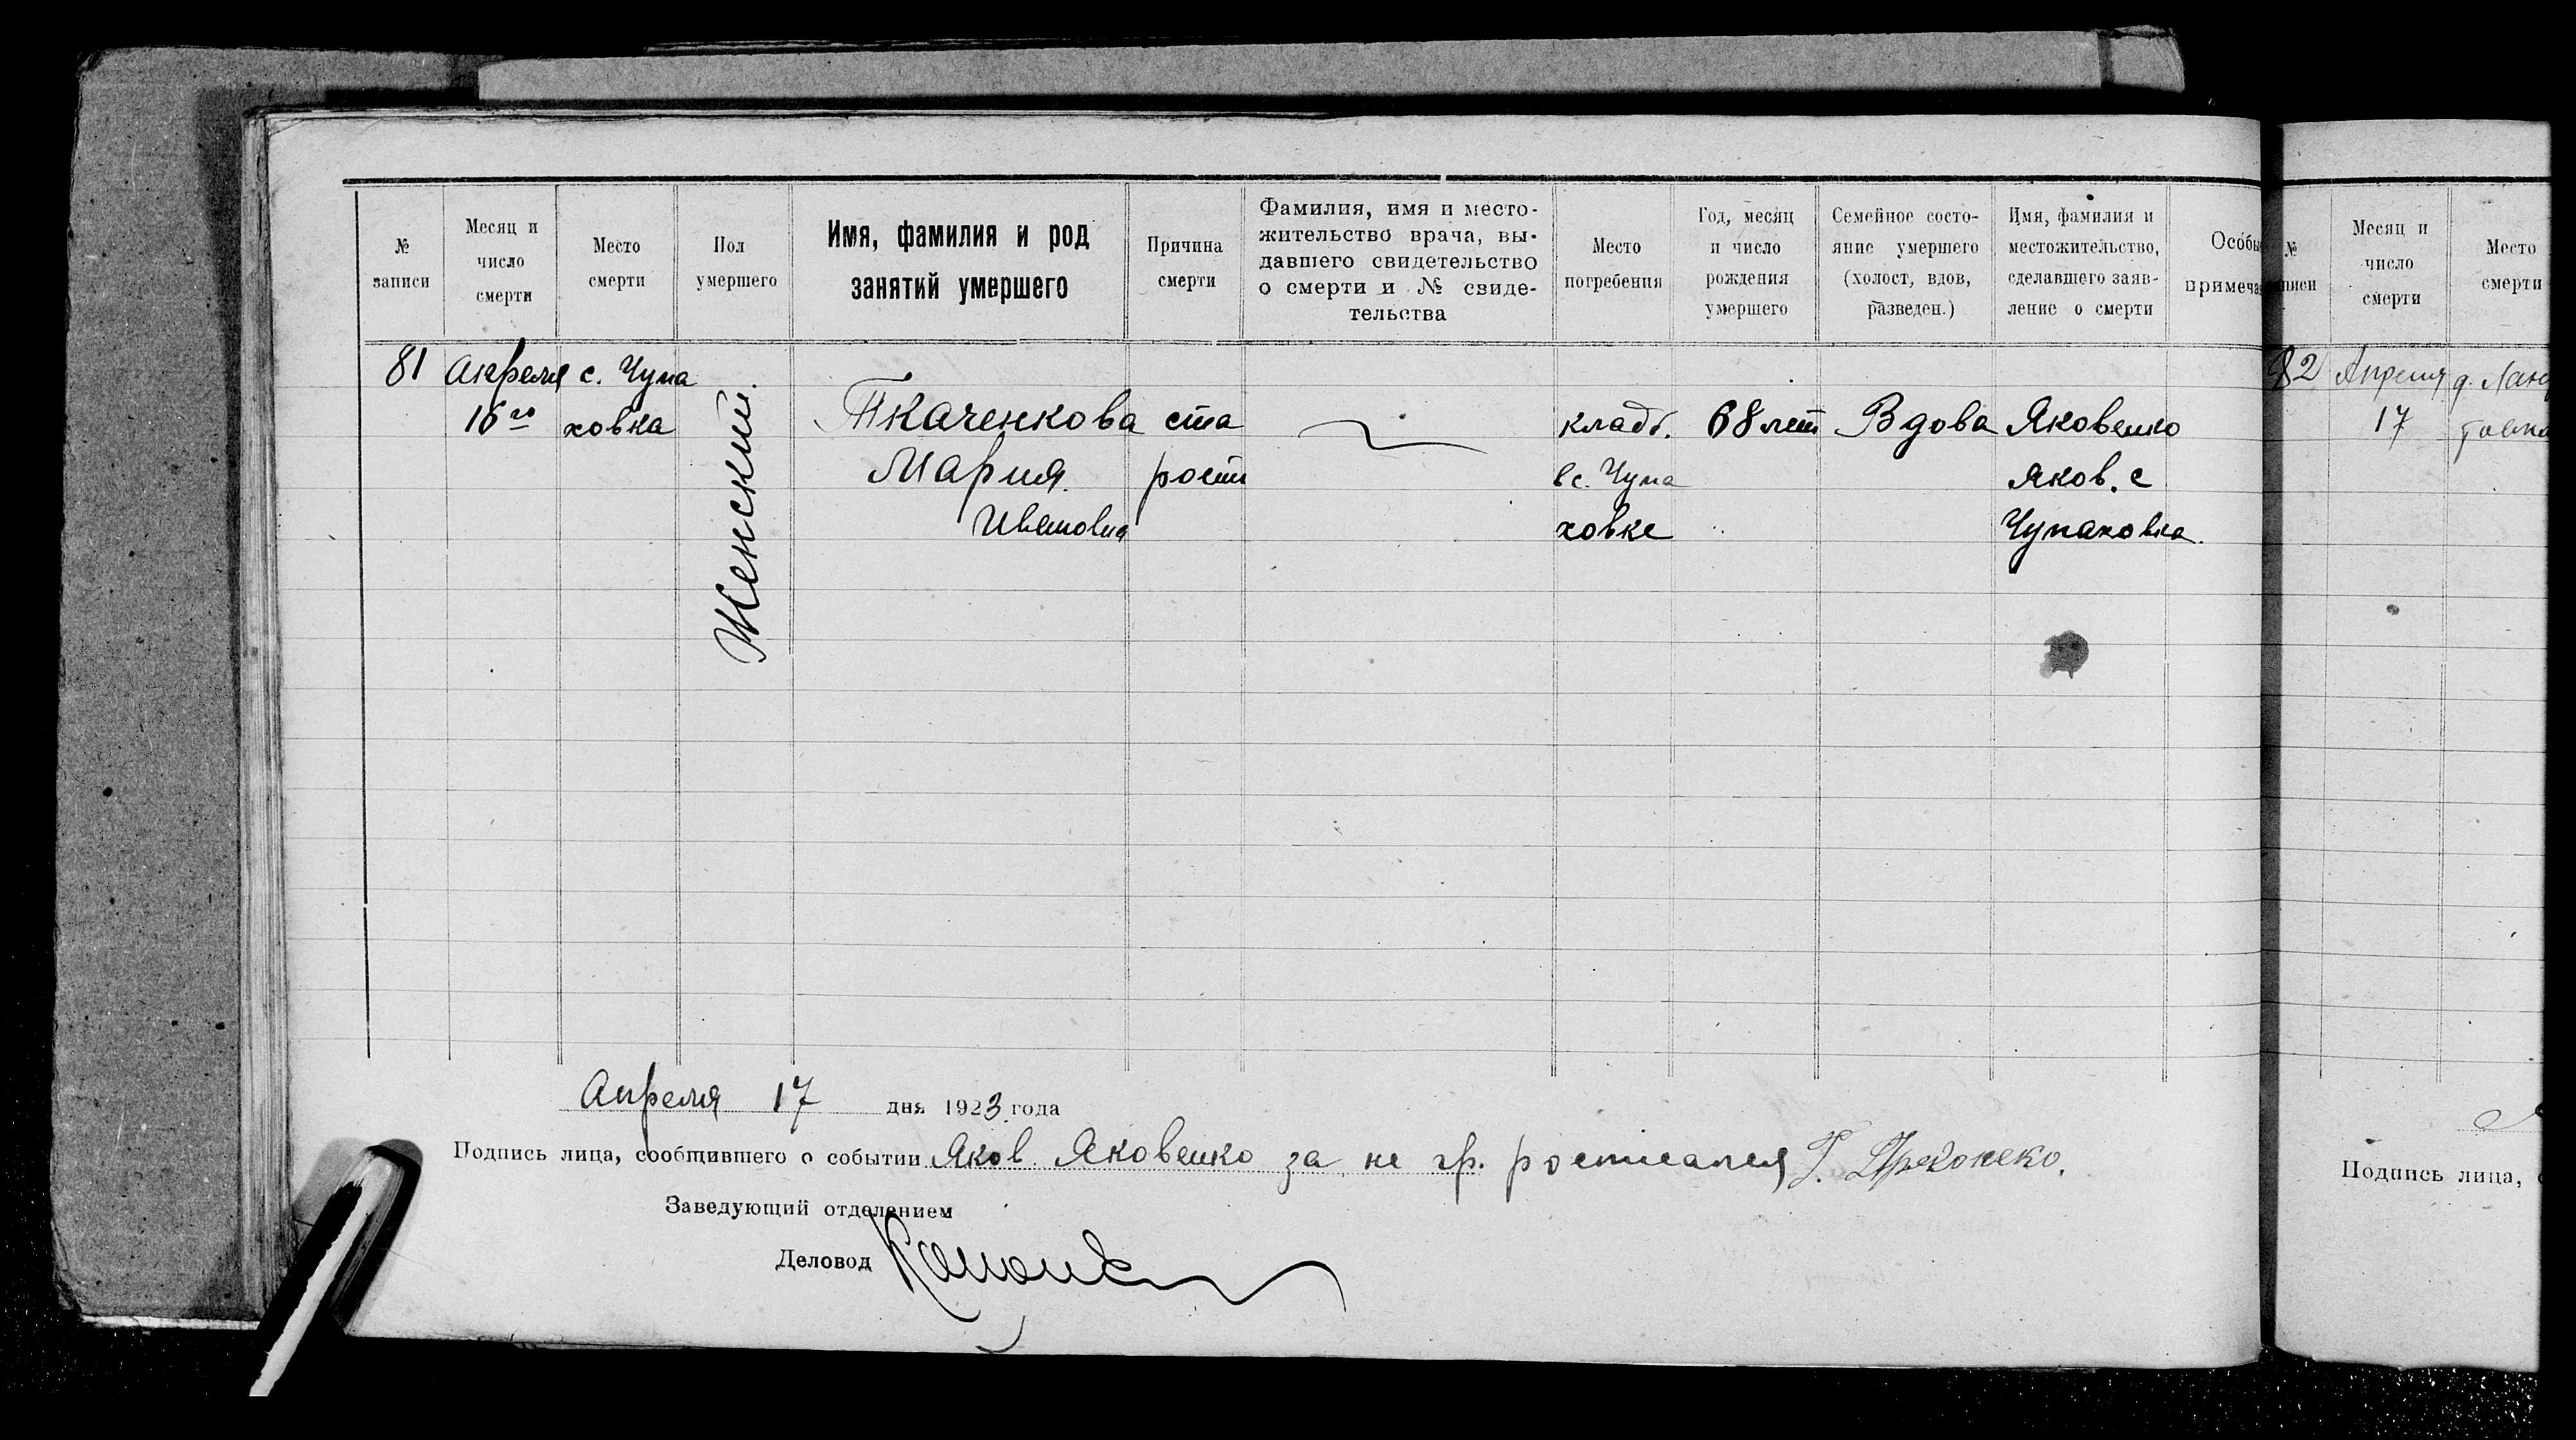 № записи
Месяц и число смерти
Место смерти
Пол умершего
Имя, фамилия и род занятий умершего
Причина смерти
Фамилия, имя и место-
жительство врача, вы-
давшего свидетельство
о смерти и № свиде-
тельства
Место погребения
Год, месяц и число рождения умершего
Семейное состо-
яние умершего
(холост, вдов,
разведен.)
Имя, фамилия и
местожительство,
сделавшего заяв-
ление о смерти
Особы
примеча
81
Апреля
16го
с. Чупа
ховка
Женский.
Ткаченкова
Мария.
Ивановна
ста
рости
кладб.
в с. Чупа
ховке
68 лет
Вдова
Яковенко
Яков. с
Чупаховка.
Апреля 17 дня 1923 года
Подпись лица, сообщившего о событии Яков Яковенко за не гр. росписался Г.
Заведующий отделением
Деловод
№
писи
Месяц и
число
смерти
Место
смерти
82
Апреля
17
д.
Подпись лица,